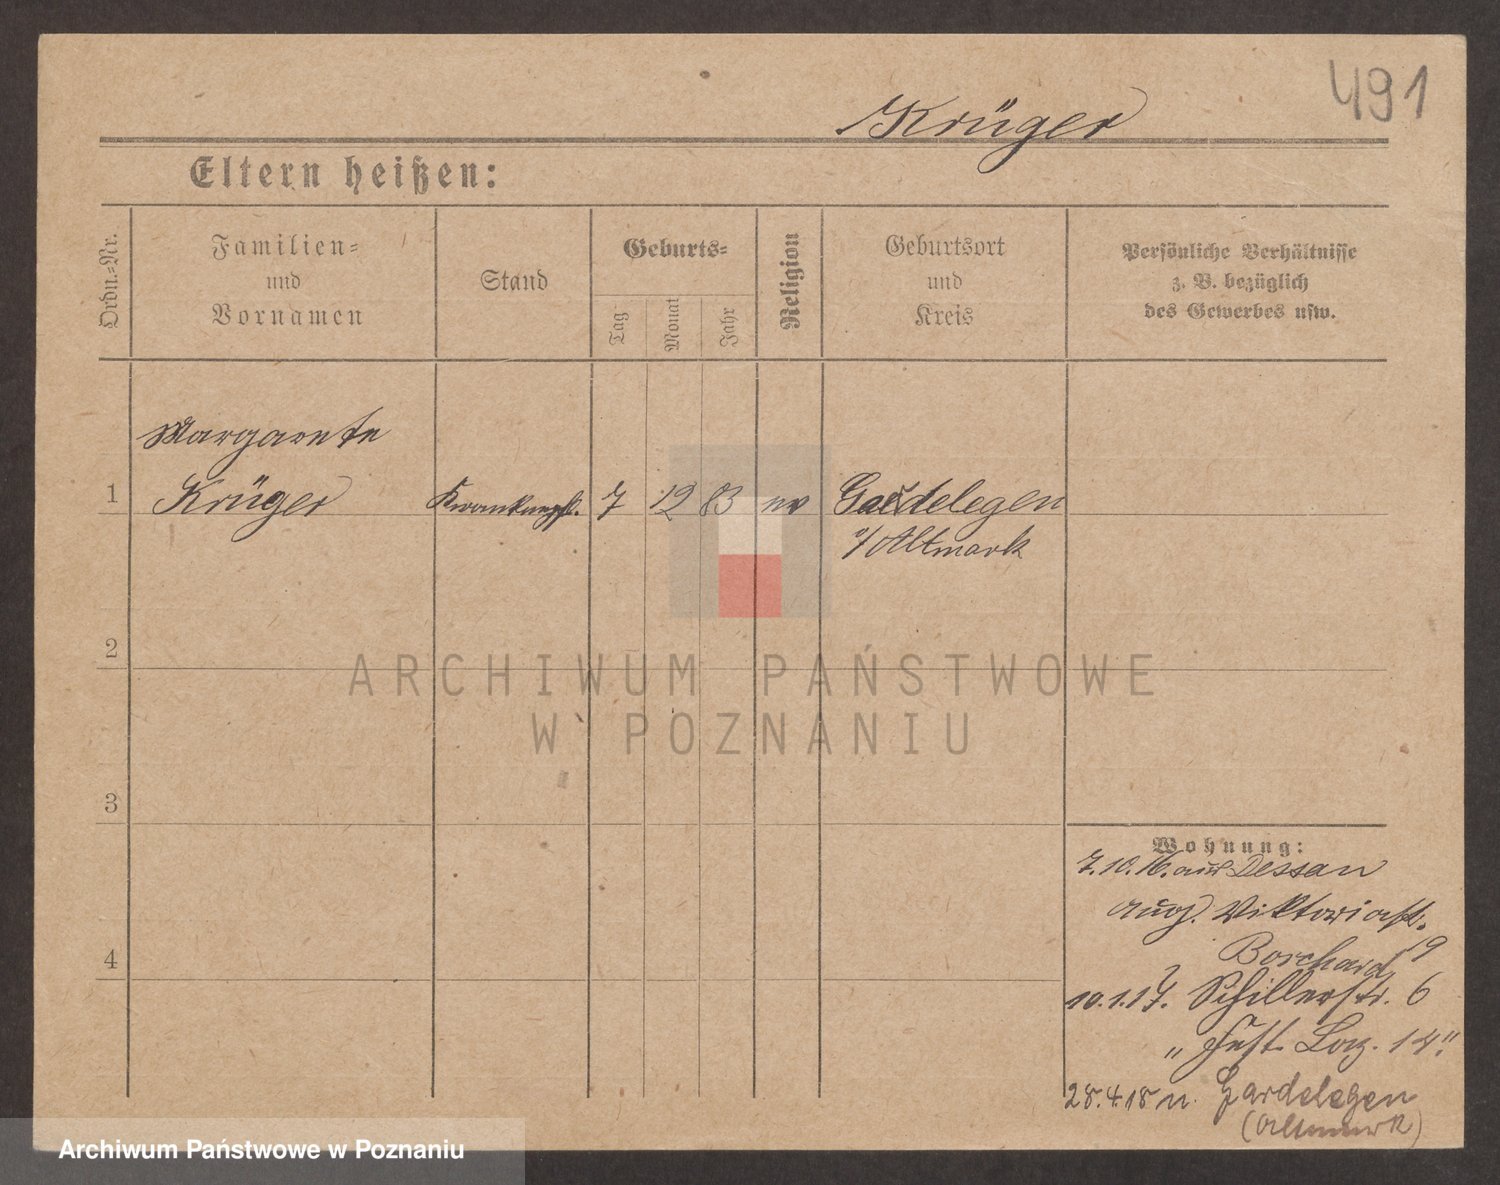 491
Krüger
Eltern heißen:
Ordn.-Nr.
Familien-
und
Vornamen
Stand
Geburts-
Tag
Monat
Jahr
Religion
Geburtsort
und
Kreis
Persönliche Verhältnisse
z. B. bezüglich
des Gewerbes usw.
Margarete
1 Krüger Krankenpfl. 7 12 83 ev Gardelegen
i/Altmark
2
3
4
Wohnung:
7.10.16. aus Dessau
Aug. Viktoriastr.
Borchard 19
10.1.17. Schillerstr. 6
„ Fest. Laz. 14."
28.4.18 n. Gardelegen
(Altmark)
ARCHIWUM PAŃSTWOWE
W POZNANIU
Archiwum Państwowe w Poznaniu